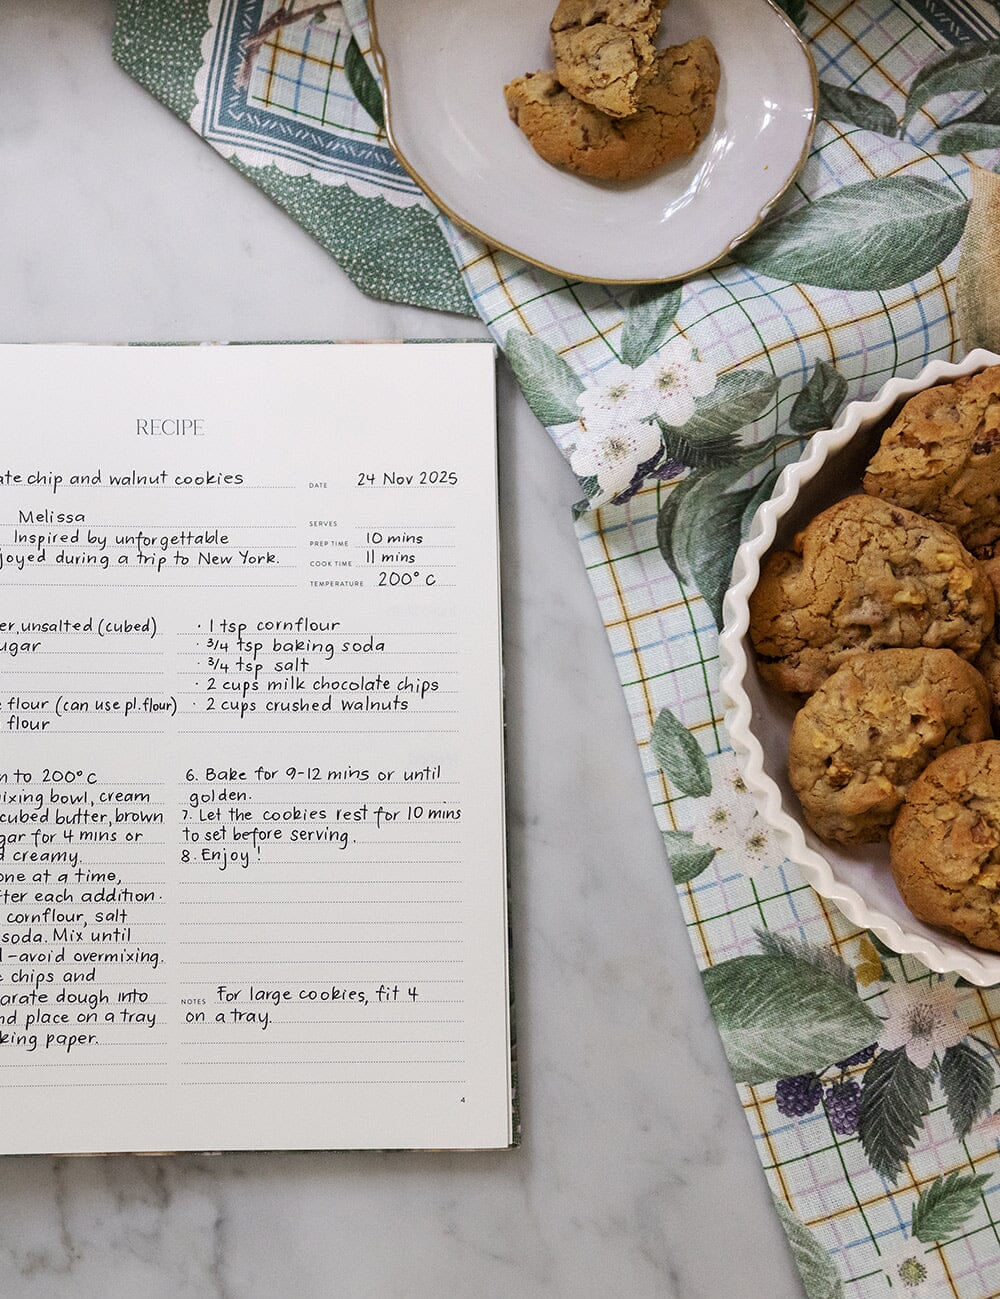 RECIPE
ate chip and walnut cookies
DATE 24 Nov 2025
Melissa
Inspired by unforgettable
joyed during a trip to New York.
SERVES
PREP TIME 10 mins
COOK TIME 11 mins
TEMPERATURE 200°C
er, unsalted (cubed)
ugar
flour (can use pl. flour)
flour
· 1 tsp cornflour
· 3/4 tsp baking soda
· 3/4 tsp salt
· 2 cups milk chocolate chips
· 2 cups crushed walnuts
n to 200°C
ixing bowl, cream
cubed butter, brown
gar for 4 mins or
d creamy.
one at a time,
fter each addition.
cornflour, salt
soda. Mix until
d - avoid overmixing.
e chips and
arate dough into
nd place on a tray
king paper.
6. Bake for 9-12 mins or until
golden.
7. Let the cookies rest for 10 mins
to set before serving.
8. Enjoy!
NOTES For large cookies, fit 4
on a tray.
4